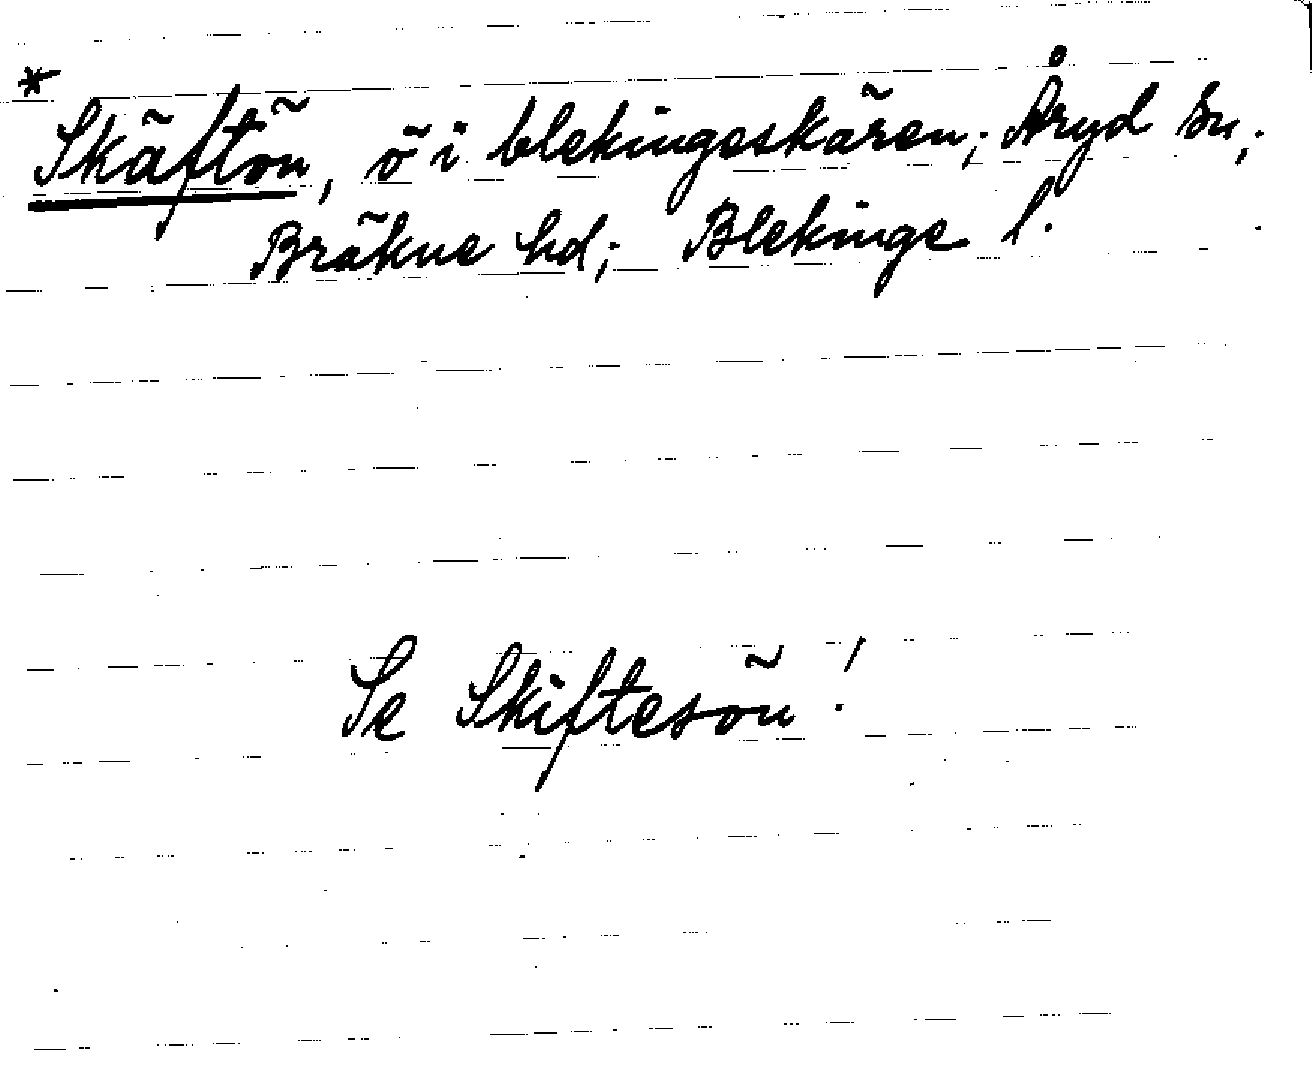 *
Skäftön, ö i blekingeskären; Åryd sn,
Bräkne hd; Blekinge l.
Se Skiftesön!